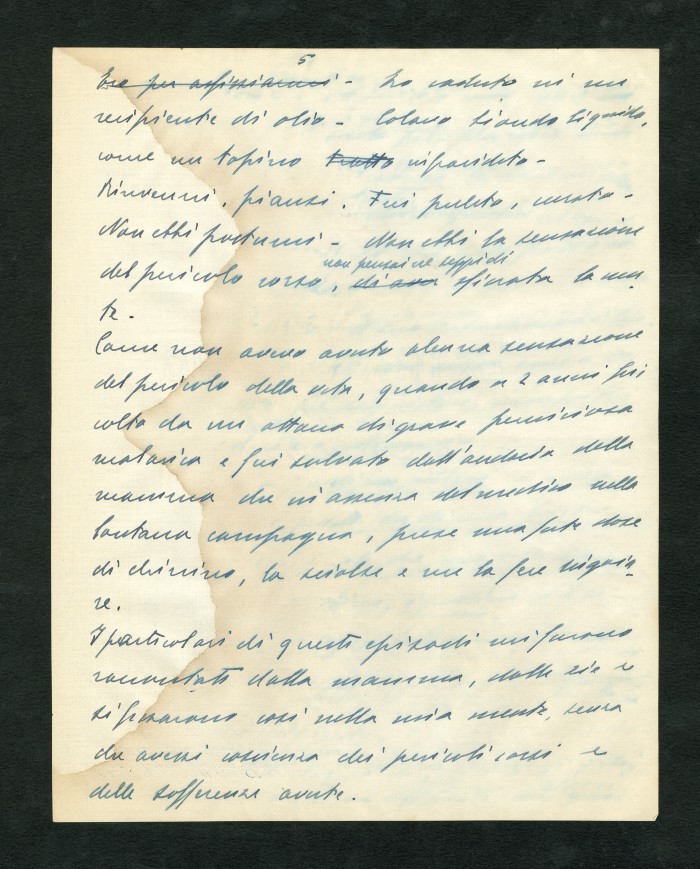 5
Ero per asfissiarmi - Ero caduto in un
recipiente di olio - Colavo grondo liquido,
come un topino tratto rapidito -
Rinvenni, piansi. Fui pulito, curato -
Non ebbi postumi - Non ebbi la sensazione
non pensai nè seppi di
del pericolo corso, di aver sfiorata la mor
te.
Come non avevo avuto alcuna sensazione
del pericolo della vita, quando a 2 anni fui
colto da un attacco di grave perniciosa
malarica e fui salvato dall'audacia della
mamma che in assenza del medico nella
lontana campagna, prese una forte dose
di chinino, la sciolse e me la fece ingoia-
re.
I particolari di questi episodi mi furono
raccontati dalla mamma, dalle zie e
si fissarono così nella mia mente, senza
che avessi coscienza dei pericoli corsi e
delle sofferenze avute.